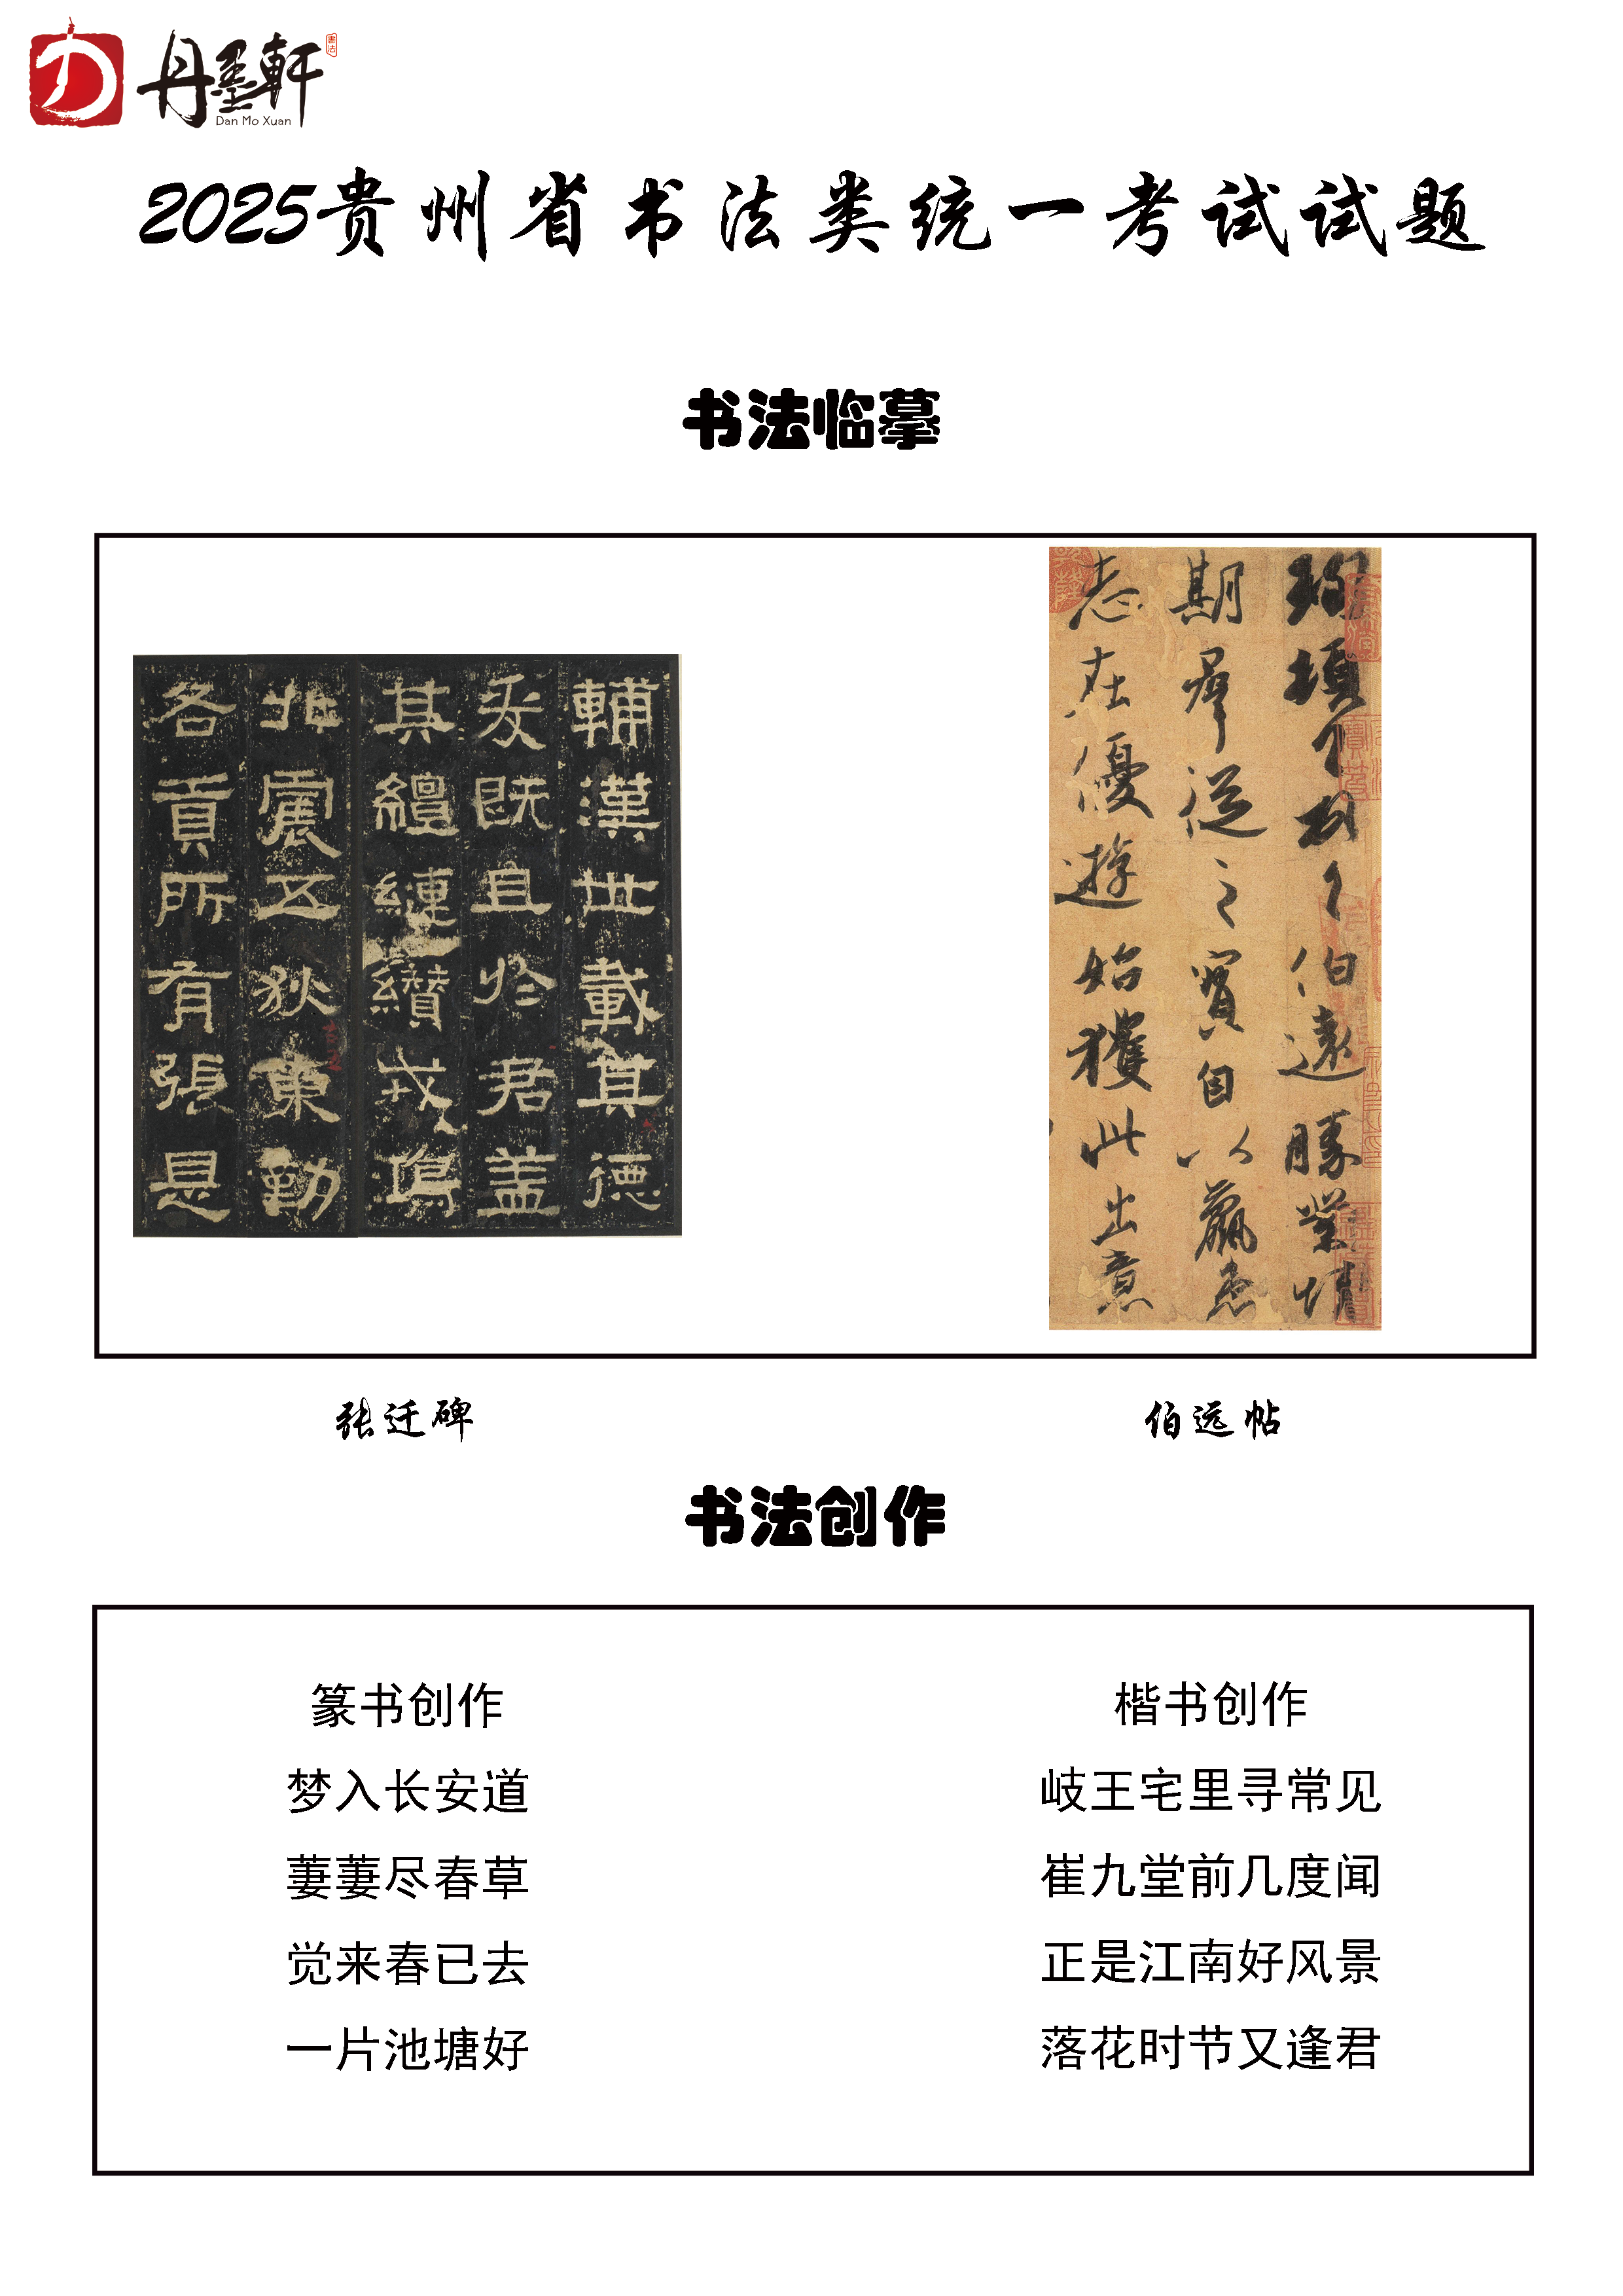 丹墨軒
書法
Dan Mo Xuan
2025贵州省书法类统一考试试题
书法临摹
輔漢世載其德
爰既且於君盖
其繵縺纘戎鴻
北震五狄東勤
各貢所有張是
珣頓首頓首伯遠勝業情
期群從之寶自以羸患
志在優遊始獲此出意
张迁碑
伯远帖
书法创作
篆书创作
梦入长安道
萋萋尽春草
觉来春已去
一片池塘好
楷书创作
岐王宅里寻常见
崔九堂前几度闻
正是江南好风景
落花时节又逢君